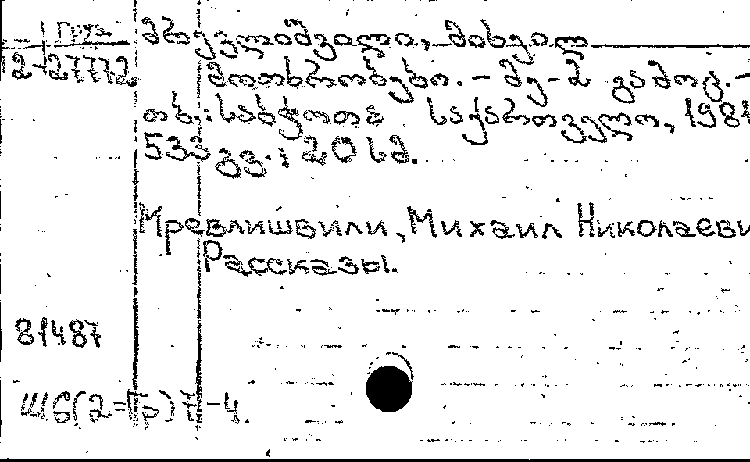 Груз
2-27772
მრევლიშვილი, მიხეილ
მოთხრობები. - მე-2 გამოც. -
თბ.: საბჭოთა საქართველო, 1981
533 გვ.; 20 სმ.
Мревлишвили, Михаил Николаеви
Рассказы.
81487
Ш6(2=Гр)7-4.